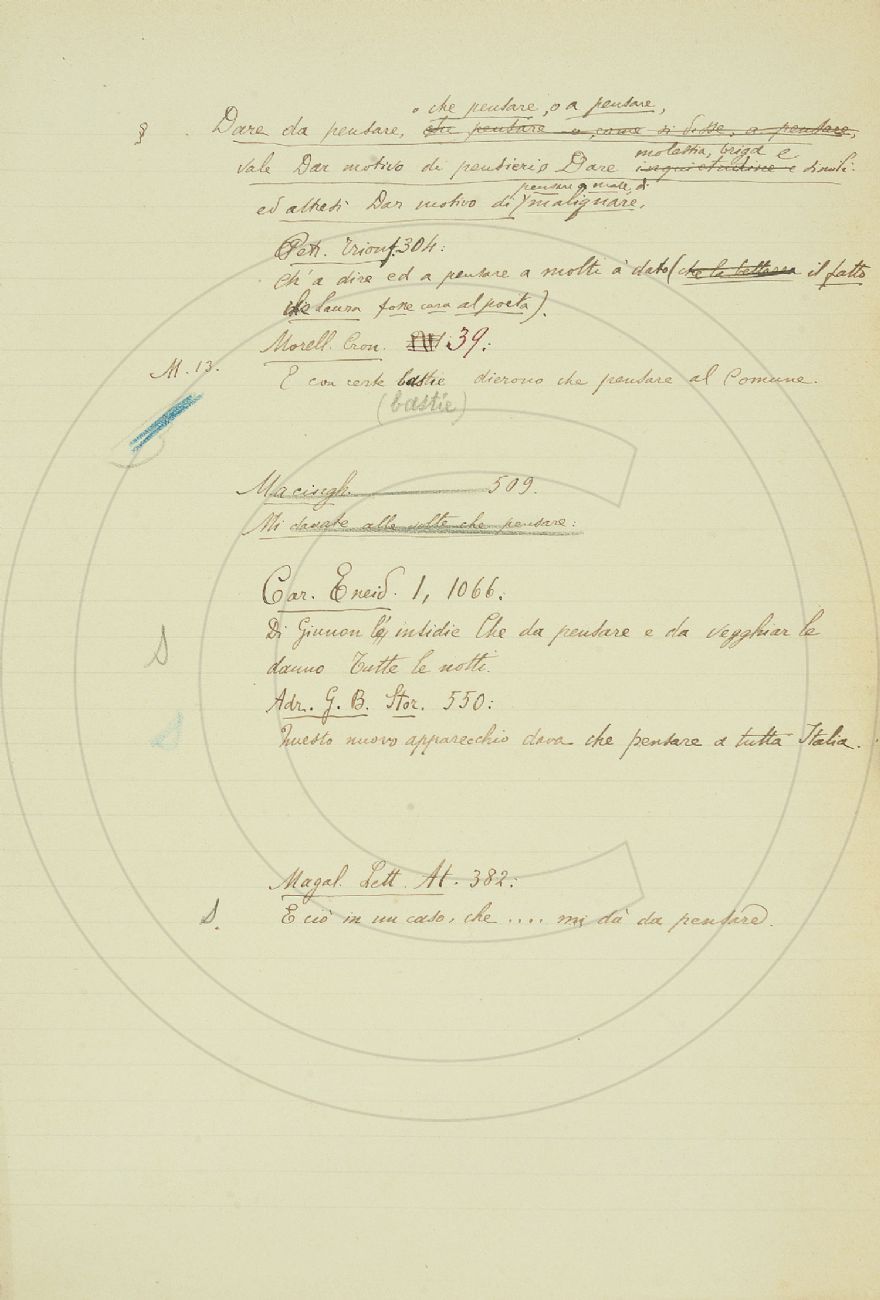 o che pensare, o a pensare,
§ Dare da pensare, che pensare o, come si disse, a pensare,
molestia, briga e
vale Dar motivo di pensiero, Dare inquietudine e simili:
pensare a male, di
ed altresì Dar motivo di malignare.
Petr. Trionf. 304:
Ch' a dire ed a pensare a molti à dato (il fatto
che Laura fosse cara al poeta).
Morell. Cron. 39:
M. 13.
E con certe bastie dierono che pensare al Comune.
(bastie)
Macingh. 509.
Mi davate alle volte che pensare:
Car. Eneid. 1, 1066:
Di Giunon le insidie Che da pensare e da vegghiar le
danno Tutte le notti.
Adr. G. B. Stor. 550:
Questo nuovo apparecchio dava che pensare a tutta Italia.
Magal. Lett. At. 382:
E ciò in un caso, che .... mi dà da pensare.